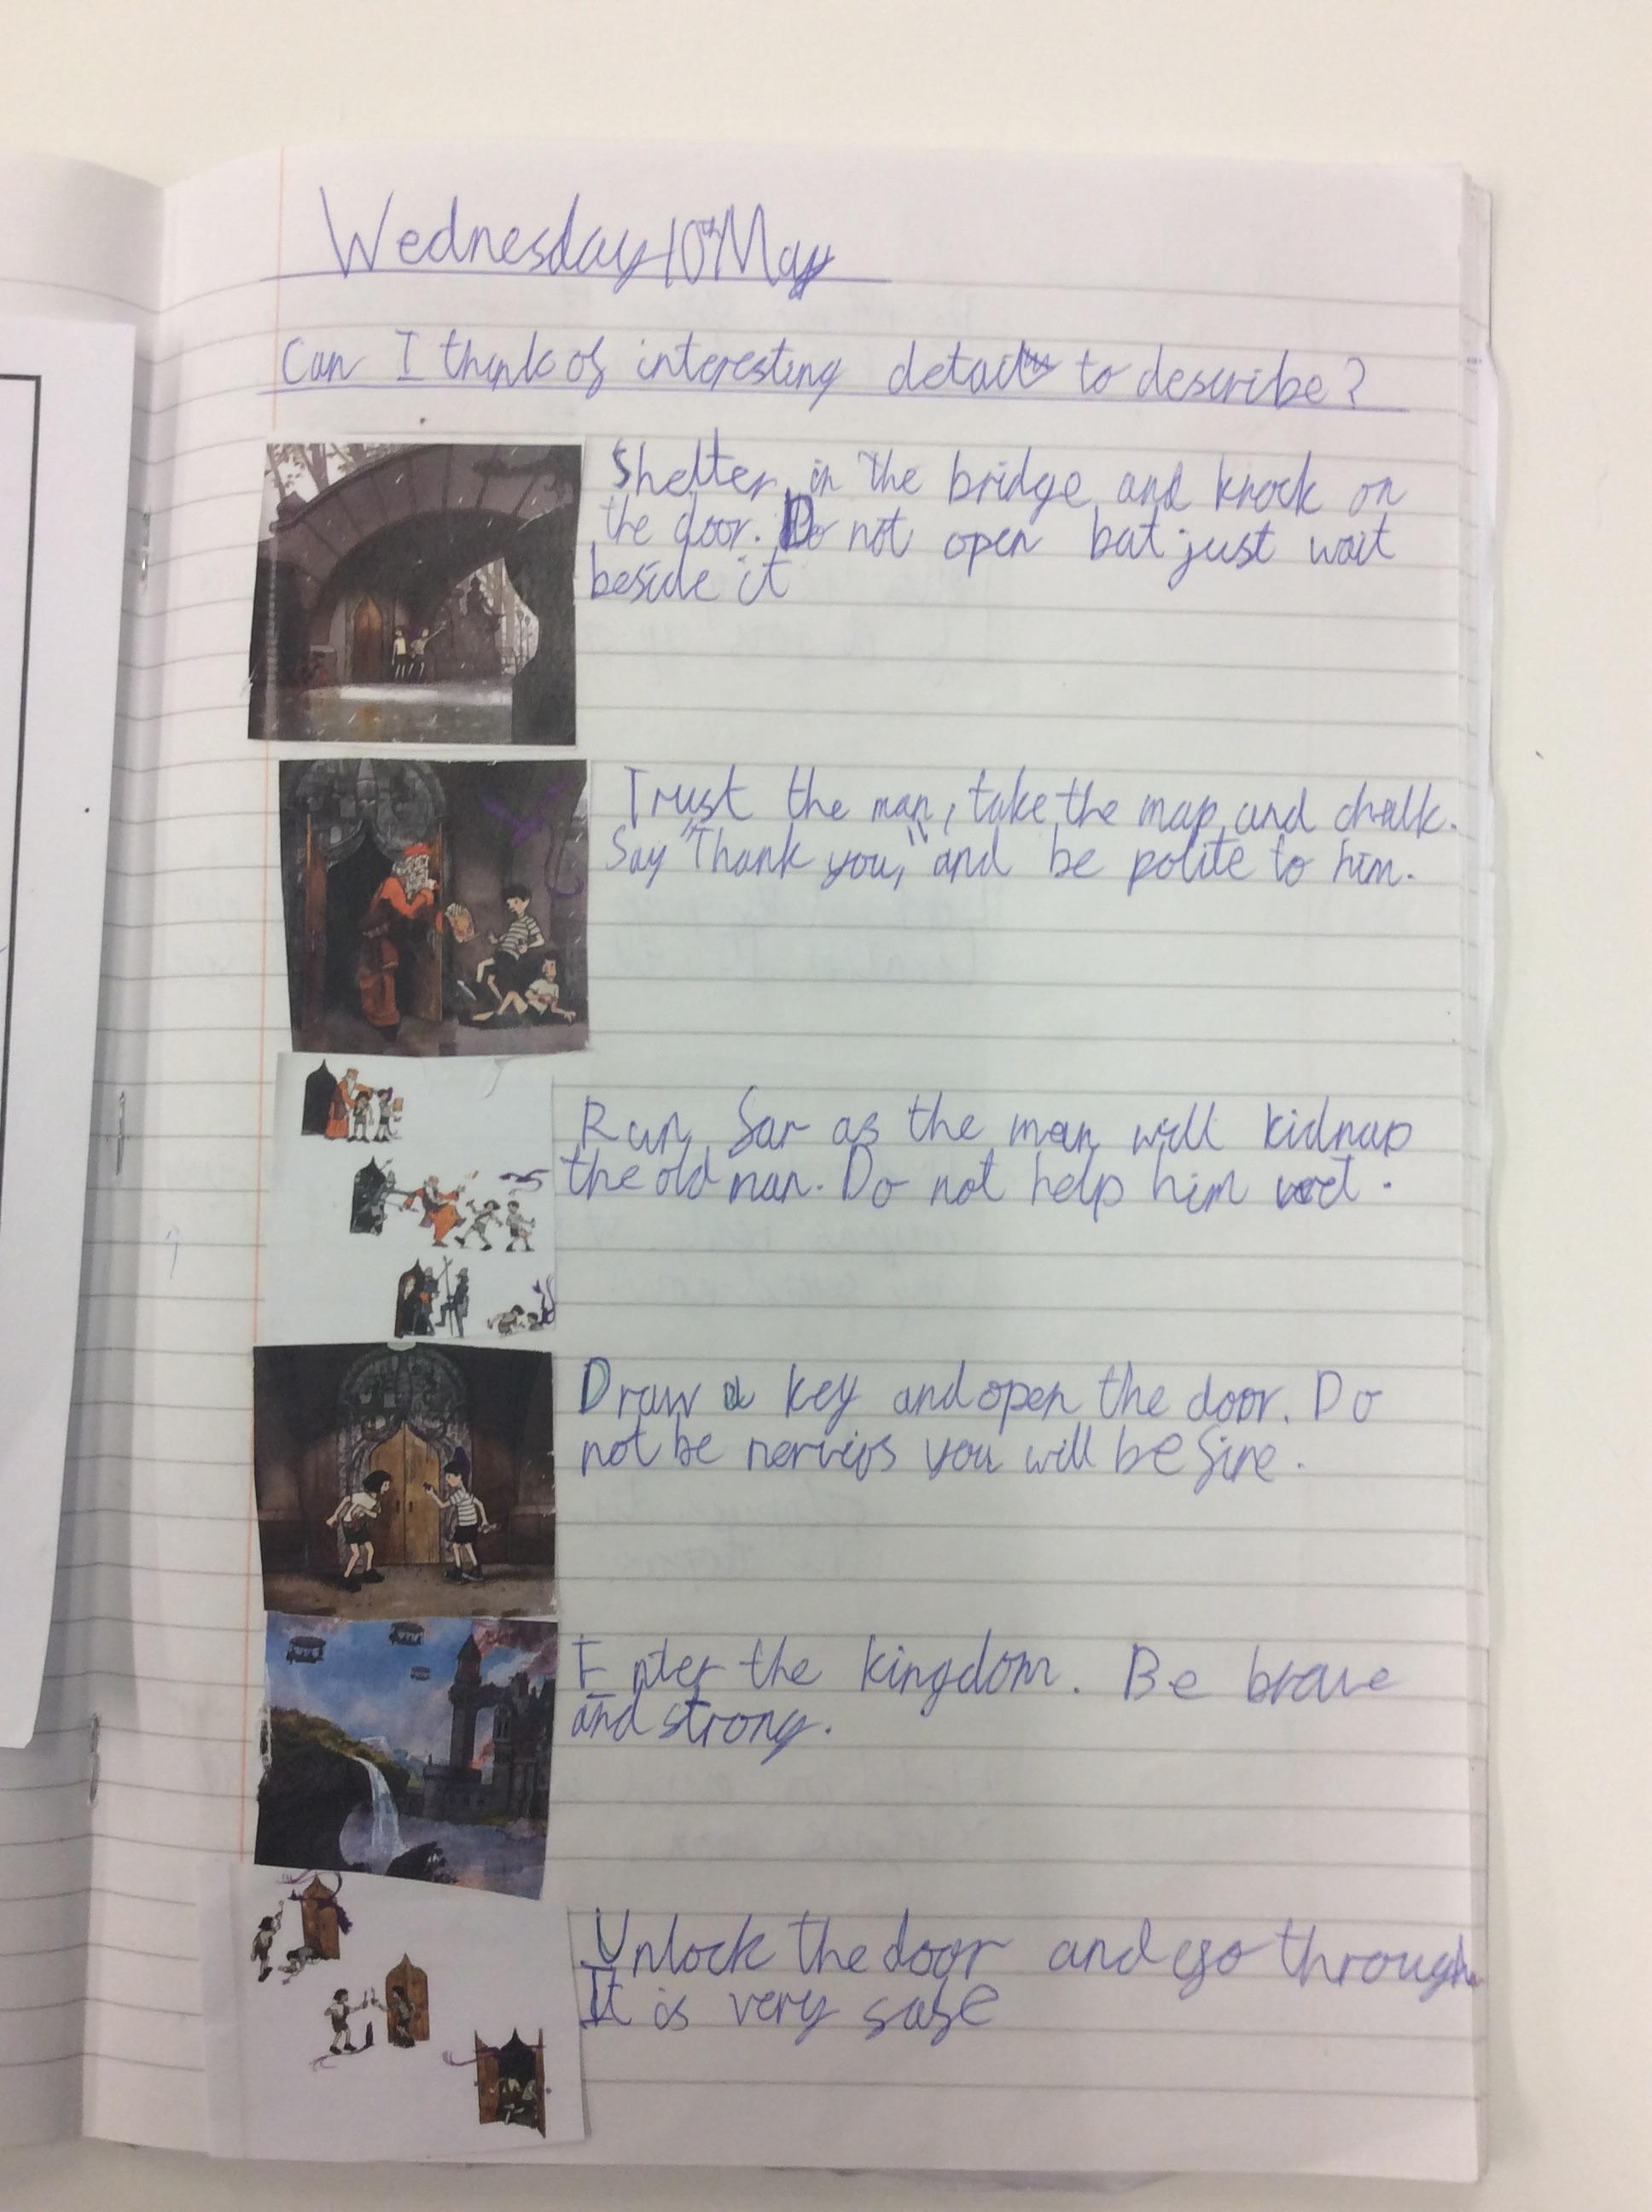 Wednesday 10th May
Can I think of interesting details to describe?
Shelter in the bridge and knock on
the door. Do not open but just wait
beside it
Trust the man, take the map and chalk.
Say "Thank you," and be polite to him.
Run far as the man will kidnap
the old man. Do not help him
Draw a key and open the door. Do
not be nervios you will be fine.
Enter the kingdom. Be brave
and strong.
Unlock the door and go through.
It is very safe